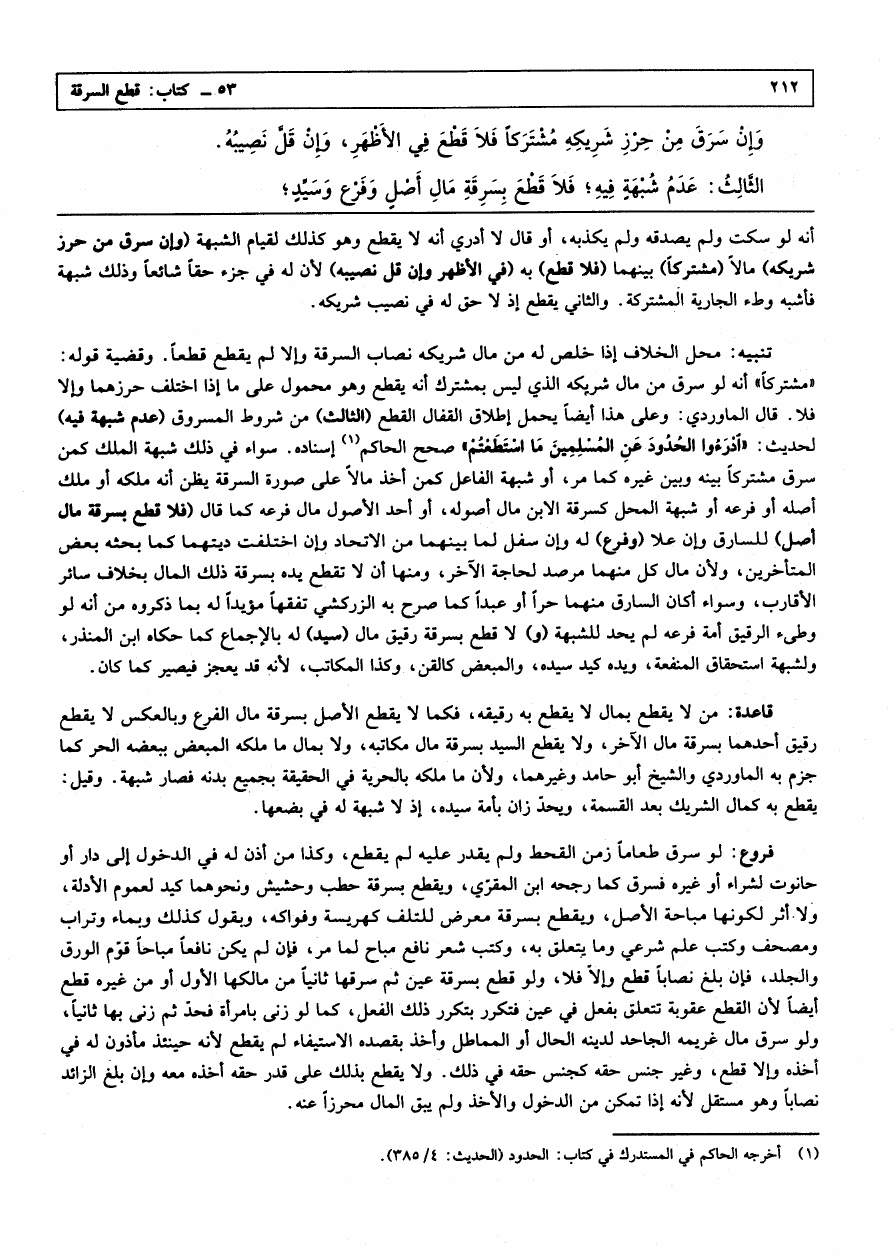 ٢١٢ ٥٣ ـ كتاب: قطع السرقة
وَإِنْ سَرَقَ مِنْ حِرْزِ شَرِيكِهِ مُشْتَرَكاً فَلاَ قَطْعَ فِي الأَظْهَرِ، وَإِنْ قَلَّ نَصِيبُهُ.
الثَّالِثُ: عَدَمُ شُبْهَةٍ فِيهِ؛ فَلاَ قَطْعَ بِسَرِقَةِ مَالِ أَصْلٍ وَفَرْعٍ وَسَيِّدٍ؛
أنه لو سكت ولم يصدقه ولم يكذبه، أو قال لا أدري أنه لا يقطع وهو كذلك لقيام الشبهة (وإن سرق من حرز
شريكه) مالاً (مشتركاً) بينهما (فلا قطع) به (في الأظهر وإن قل نصيبه) لأن له في جزء حقاً شائعاً وذلك شبهة
فأشبه وطء الجارية المشتركة. والثاني يقطع إذ لا حق له في نصيب شريكه.
تنبيه: محل الخلاف إذا خلص له من مال شريكه نصاب السرقة وإلا لم يقطع قطعاً. وقضية قوله:
«مشتركاً» أنه لو سرق من مال شريكه الذي ليس بمشترك أنه يقطع وهو محمول على ما إذا اختلف حرزهما وإلا
فلا. قال الماوردي: وعلى هذا أيضاً يحمل إطلاق القفال القطع (الثالث) من شروط المسروق (عدم شبهة فيه)
لحديث: «اَدْرَءُوا الحُدُودَ عَنِ المُسْلِمِينَ مَا اسْتَطَعْتُمْ» صحح الحاكم(١) إسناده. سواء في ذلك شبهة الملك كمن
سرق مشتركاً بينه وبين غيره كما مر، أو شبهة الفاعل كمن أخذ مالاً على صورة السرقة يظن أنه ملكه أو ملك
أصله أو فرعه أو شبهة المحل كسرقة الابن مال أصوله، أو أحد الأصول مال فرعه كما قال (فلا قطع بسرقة مال
أصل) للسارق وإن علا (وفرع) له وإن سفل لما بينهما من الاتحاد وإن اختلفت ديتهما كما بحثه بعض
المتأخرين، ولأن مال كل منهما مرصد لحاجة الآخر، ومنها أن لا تقطع يده بسرقة ذلك المال بخلاف سائر
الأقارب، وسواء أكان السارق منهما حراً أو عبداً كما صرح به الزركشي تفقهاً مؤيداً له بما ذكروه من أنه لو
وطىء الرقيق أمة فرعه لم يحد للشبهة (و) لا قطع بسرقة رقيق مال (سيد) له بالإجماع كما حكاه ابن المنذر،
ولشبهة استحقاق المنفعة، ويده كيد سيده، والمبعض كالقن، وكذا المكاتب، لأنه قد يعجز فيصير كما كان.
قاعدة: من لا يقطع بمال لا يقطع به رقيقه، فكما لا يقطع الأصل بسرقة مال الفرع وبالعكس لا يقطع
رقيق أحدهما بسرقة مال الآخر، ولا يقطع السيد بسرقة مال مكاتبه، ولا بمال ما ملكه المبعض ببعضه الحر كما
جزم به الماوردي والشيخ أبو حامد وغيرهما، ولأن ما ملكه بالحرية في الحقيقة بجميع بدنه فصار شبهة. وقيل:
يقطع به كمال الشريك بعد القسمة، ويحدّ زان بأمة سيده، إذ لا شبهة له في بضعها.
فروع: لو سرق طعاماً زمن القحط ولم يقدر عليه لم يقطع، وكذا من أذن له في الدخول إلى دار أو
حانوت لشراء أو غيره فسرق كما رجحه ابن المقرّي، ويقطع بسرقة حطب وحشيش ونحوهما كيد لعموم الأدلة،
ولا أثر لكونها مباحة الأصل، ويقطع بسرقة معرض للتلف كهريسة وفواكه، وبقول كذلك وبماء وتراب
ومصحف وكتب علم شرعي وما يتعلق به، وكتب شعر نافع مباح لما مر، فإن لم يكن نافعاً مباحاً قوّم الورق
والجلد، فإن بلغ نصاباً قطع وإلاّ فلا، ولو قطع بسرقة عين ثم سرقها ثانياً من مالكها الأول أو من غيره قطع
أيضاً لأن القطع عقوبة تتعلق بفعل في عين فتكرر بتكرر ذلك الفعل، كما لو زنى بامرأة فحدّ ثم زنى بها ثانياً،
ولو سرق مال غريمه الجاحد لدينه الحال أو المماطل وأخذ بقصده الاستيفاء لم يقطع لأنه حينئذ مأذون له في
أخذه وإلا قطع، وغير جنس حقه كجنس حقه في ذلك. ولا يقطع بذلك على قدر حقه أخذه معه وإن بلغ الزائد
نصاباً وهو مستقل لأنه إذا تمكن من الدخول والأخذ ولم يبق المال محرزاً عنه.
(١) أخرجه الحاكم في المستدرك في كتاب: الحدود (الحديث: ٤/ ٣٨٥).